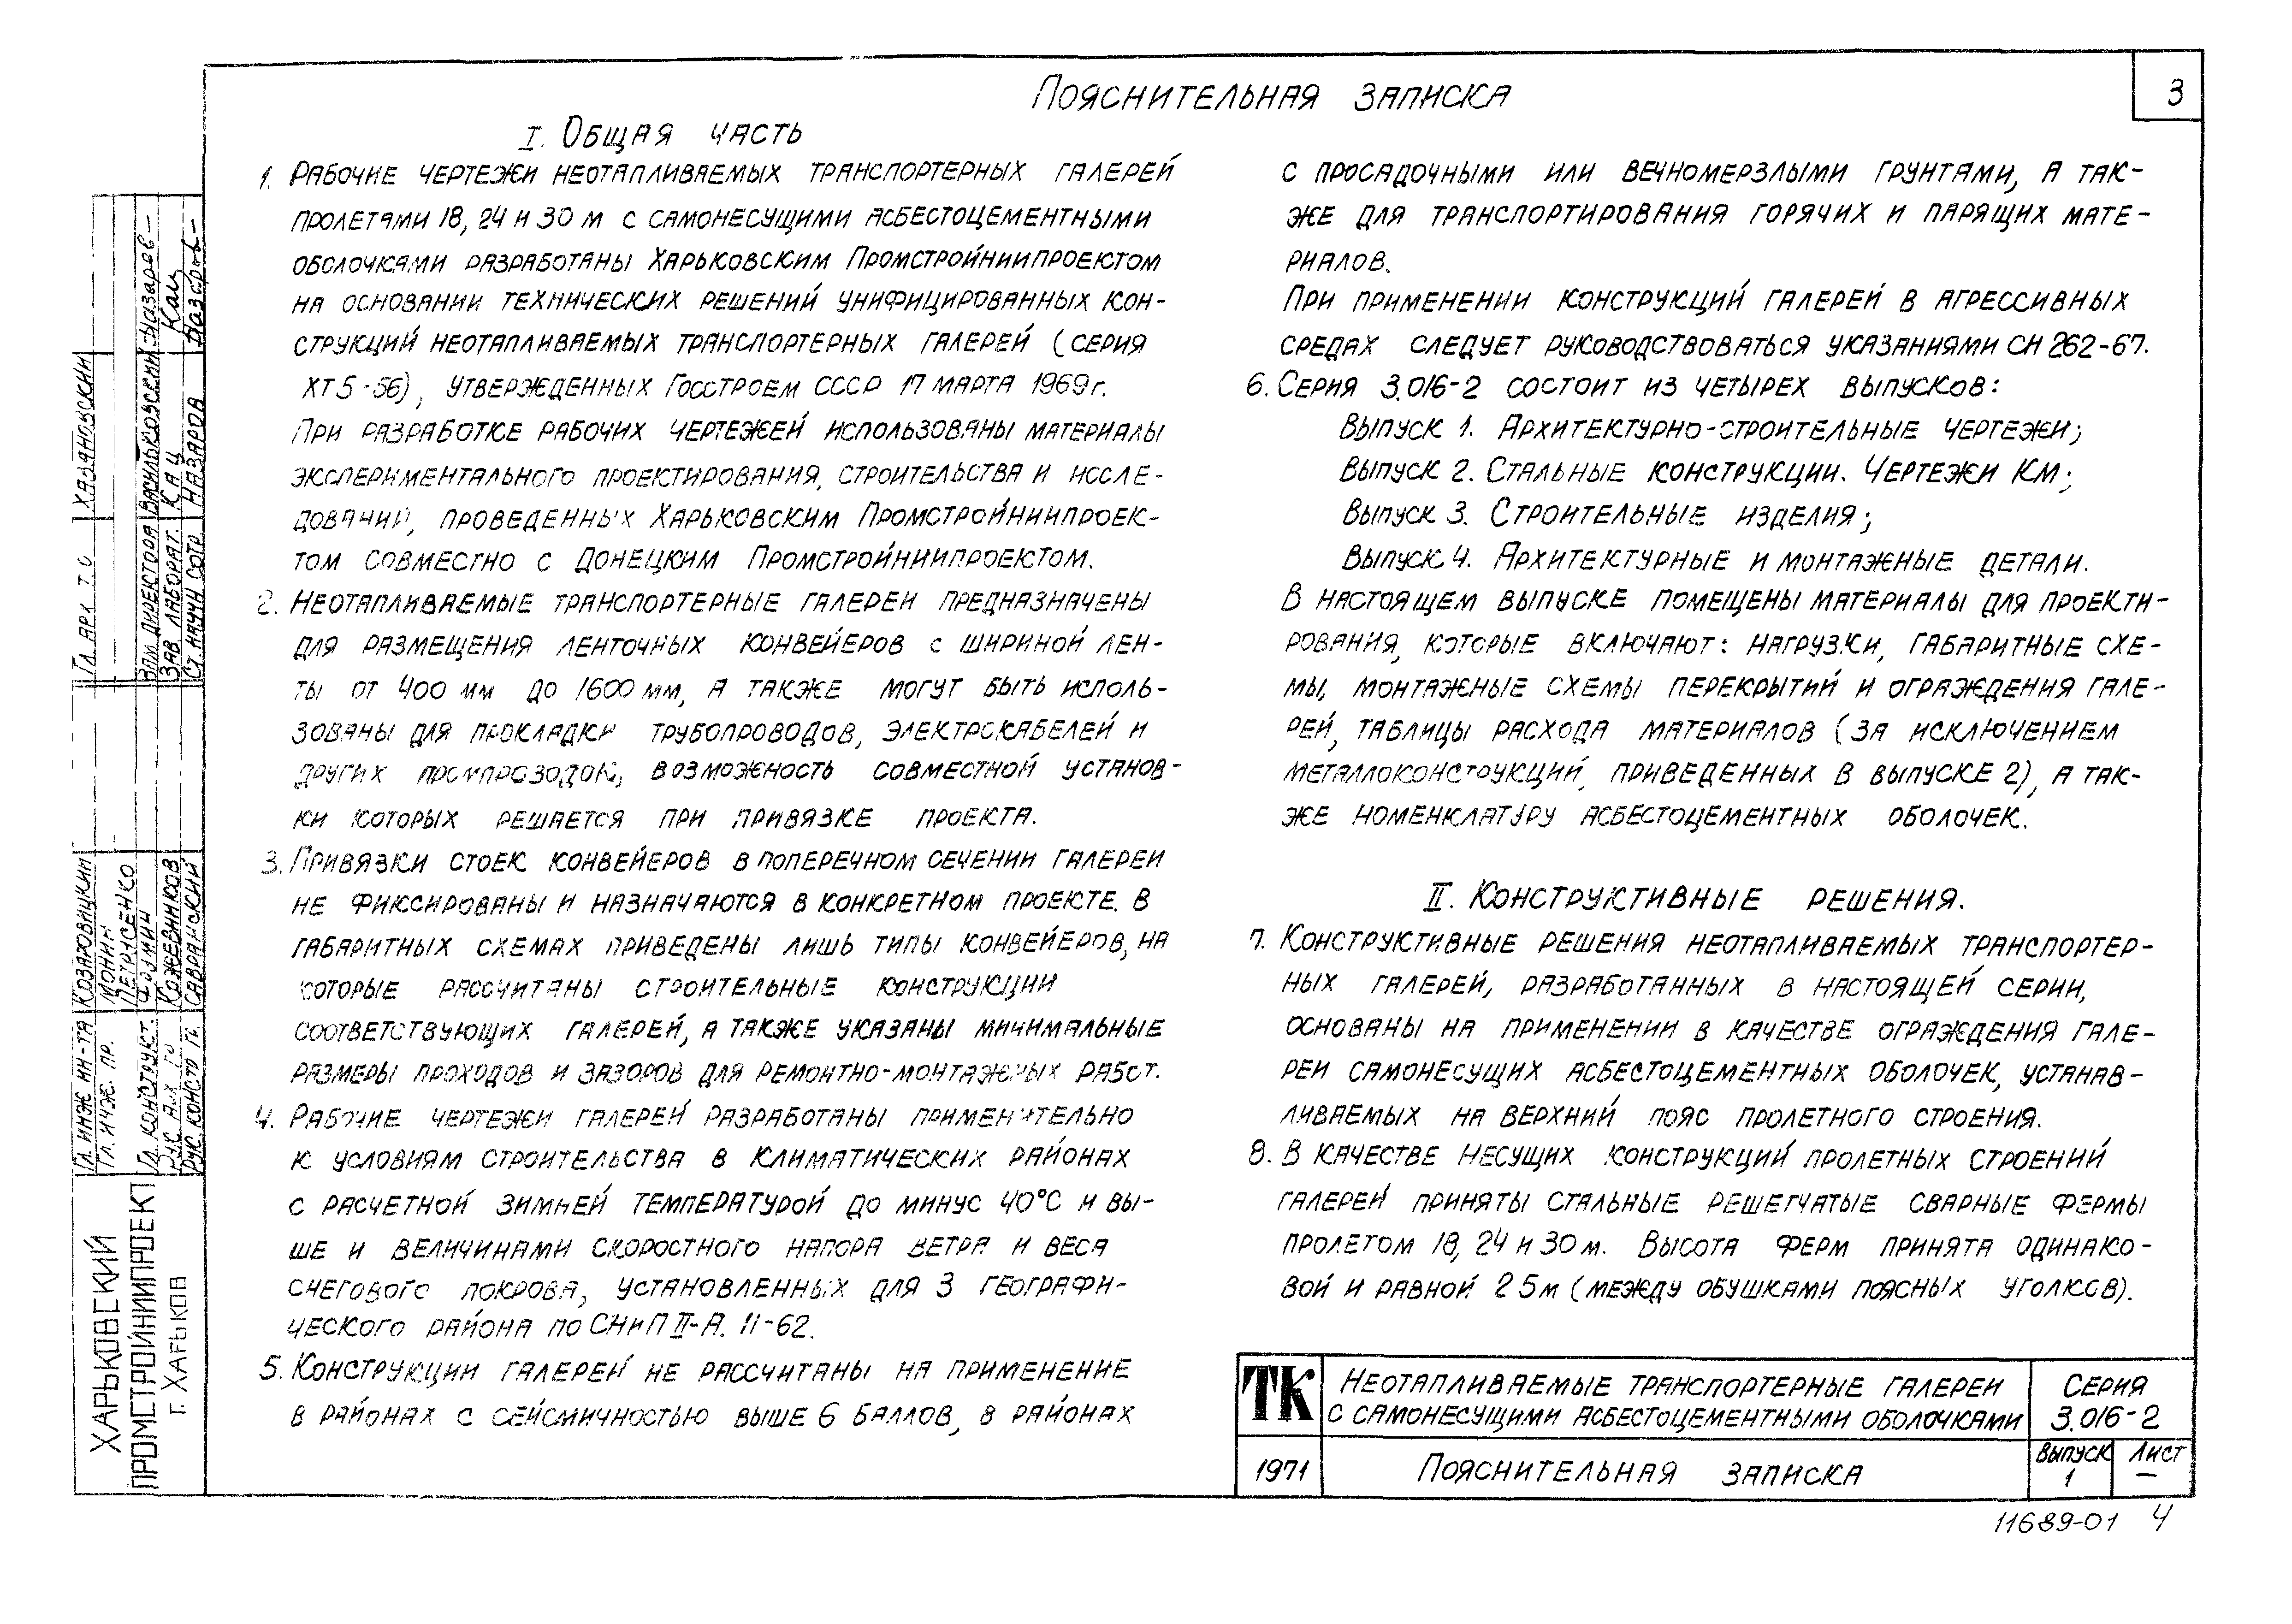 3
Пояснительная записка
I. Общая часть
1. Рабочие чертежи неотапливаемых транспортерных галерей
пролетами 18, 24 и 30 м с самонесущими асбестоцементными
оболочками разработаны Харьковским Промстройниипроектом
на основании технических решений унифицированных кон-
струкций неотапливаемых транспортерных галерей (серия
ХТ5-56), утвержденных Госстроем СССР 17 марта 1969г.
При разработке рабочих чертежей использованы материалы
экспериментального проектирования, строительства и иссле-
дований, проведенных Харьковским Промстройниипроек-
том совместно с Донецким Промстройниипроектом.
2. Неотапливаемые транспортерные галереи предназначены
для размещения ленточных конвейеров с шириной лен-
ты от 400 мм до 1600 мм, а также могут быть исполь-
зованы для прокладки трубопроводов, электрокабелей и
других промпроводок, возможность совместной установ-
ки которых решается при привязке проекта.
3. Привязки стоек конвейеров в поперечном сечении галереи
не фиксированы и назначаются в конкретном проекте. В
габаритных схемах приведены лишь типы конвейеров, на
которые рассчитаны строительные конструкции
соответствующих галерей, а также указаны минимальные
размеры проходов и зазоров для ремонтно-монтажных работ.
4. Рабочие чертежи галерей разработаны применительно
к условиям строительства в климатических районах
с расчетной зимней температурой до минус 40°С и вы-
ше и величинами скоростного напора ветра и веса
снегового покрова, установленных для 3 географи-
ческого района по СНиП II-А. 11-62.
5. Конструкции галерей не рассчитаны на применение
в районах с сейсмичностью выше 6 баллов, в районах
с просадочными или вечномерзлыми грунтами, а так-
же для транспортирования горячих и парящих мате-
риалов.
При применении конструкций галерей в агрессивных
средах следует руководствоваться указаниями СН 262-67.
6. Серия 3.016-2 состоит из четырех выпусков:
Выпуск 1. Архитектурно-строительные чертежи;
Выпуск 2. Стальные конструкции. Чертежи КМ;
Выпуск 3. Строительные изделия;
Выпуск 4. Архитектурные и монтажные детали.
В настоящем выпуске помещены материалы для проекти-
рования, которые включают: нагрузки, габаритные схе-
мы, монтажные схемы перекрытий и ограждения гале-
рей, таблицы расхода материалов (за исключением
металлоконструкций, приведенных в выпуске 2), а так-
же номенклатуру асбестоцементных оболочек.
II. Конструктивные решения.
7. Конструктивные решения неотапливаемых транспортер-
ных галерей, разработанных в настоящей серии,
основаны на применении в качестве ограждения гале-
реи самонесущих асбестоцементных оболочек, устанав-
ливаемых на верхний пояс пролетного строения.
8. В качестве несущих конструкций пролетных строений
галерей приняты стальные решетчатые сварные фермы
пролетом 18, 24 и 30 м. Высота ферм принята одинако-
вой и равной 2 5 м (между обушками поясных уголков).
ТК
Неотапливаемые транспортерные галереи
с самонесущими асбестоцементными оболочками
Серия
3.016-2
1971
Пояснительная записка
Выпуск
1
Лист
—
11689-01 4
Харьковский
Промстройниипроект
г. Харьков
Гл. инж. ин-та Козаровицкий
Гл. инж. пр. Монин
Петрусенко
Гл. конструкт. Фрумин
Рук. Кожевников
Рук. констр гр. Савранский
Гл. арх. т.о Хазановский
Зам. директора Васильковский Назарев
Зав. лаборат. Кац Кац
Ст. научн сотр. Назаров Назаров